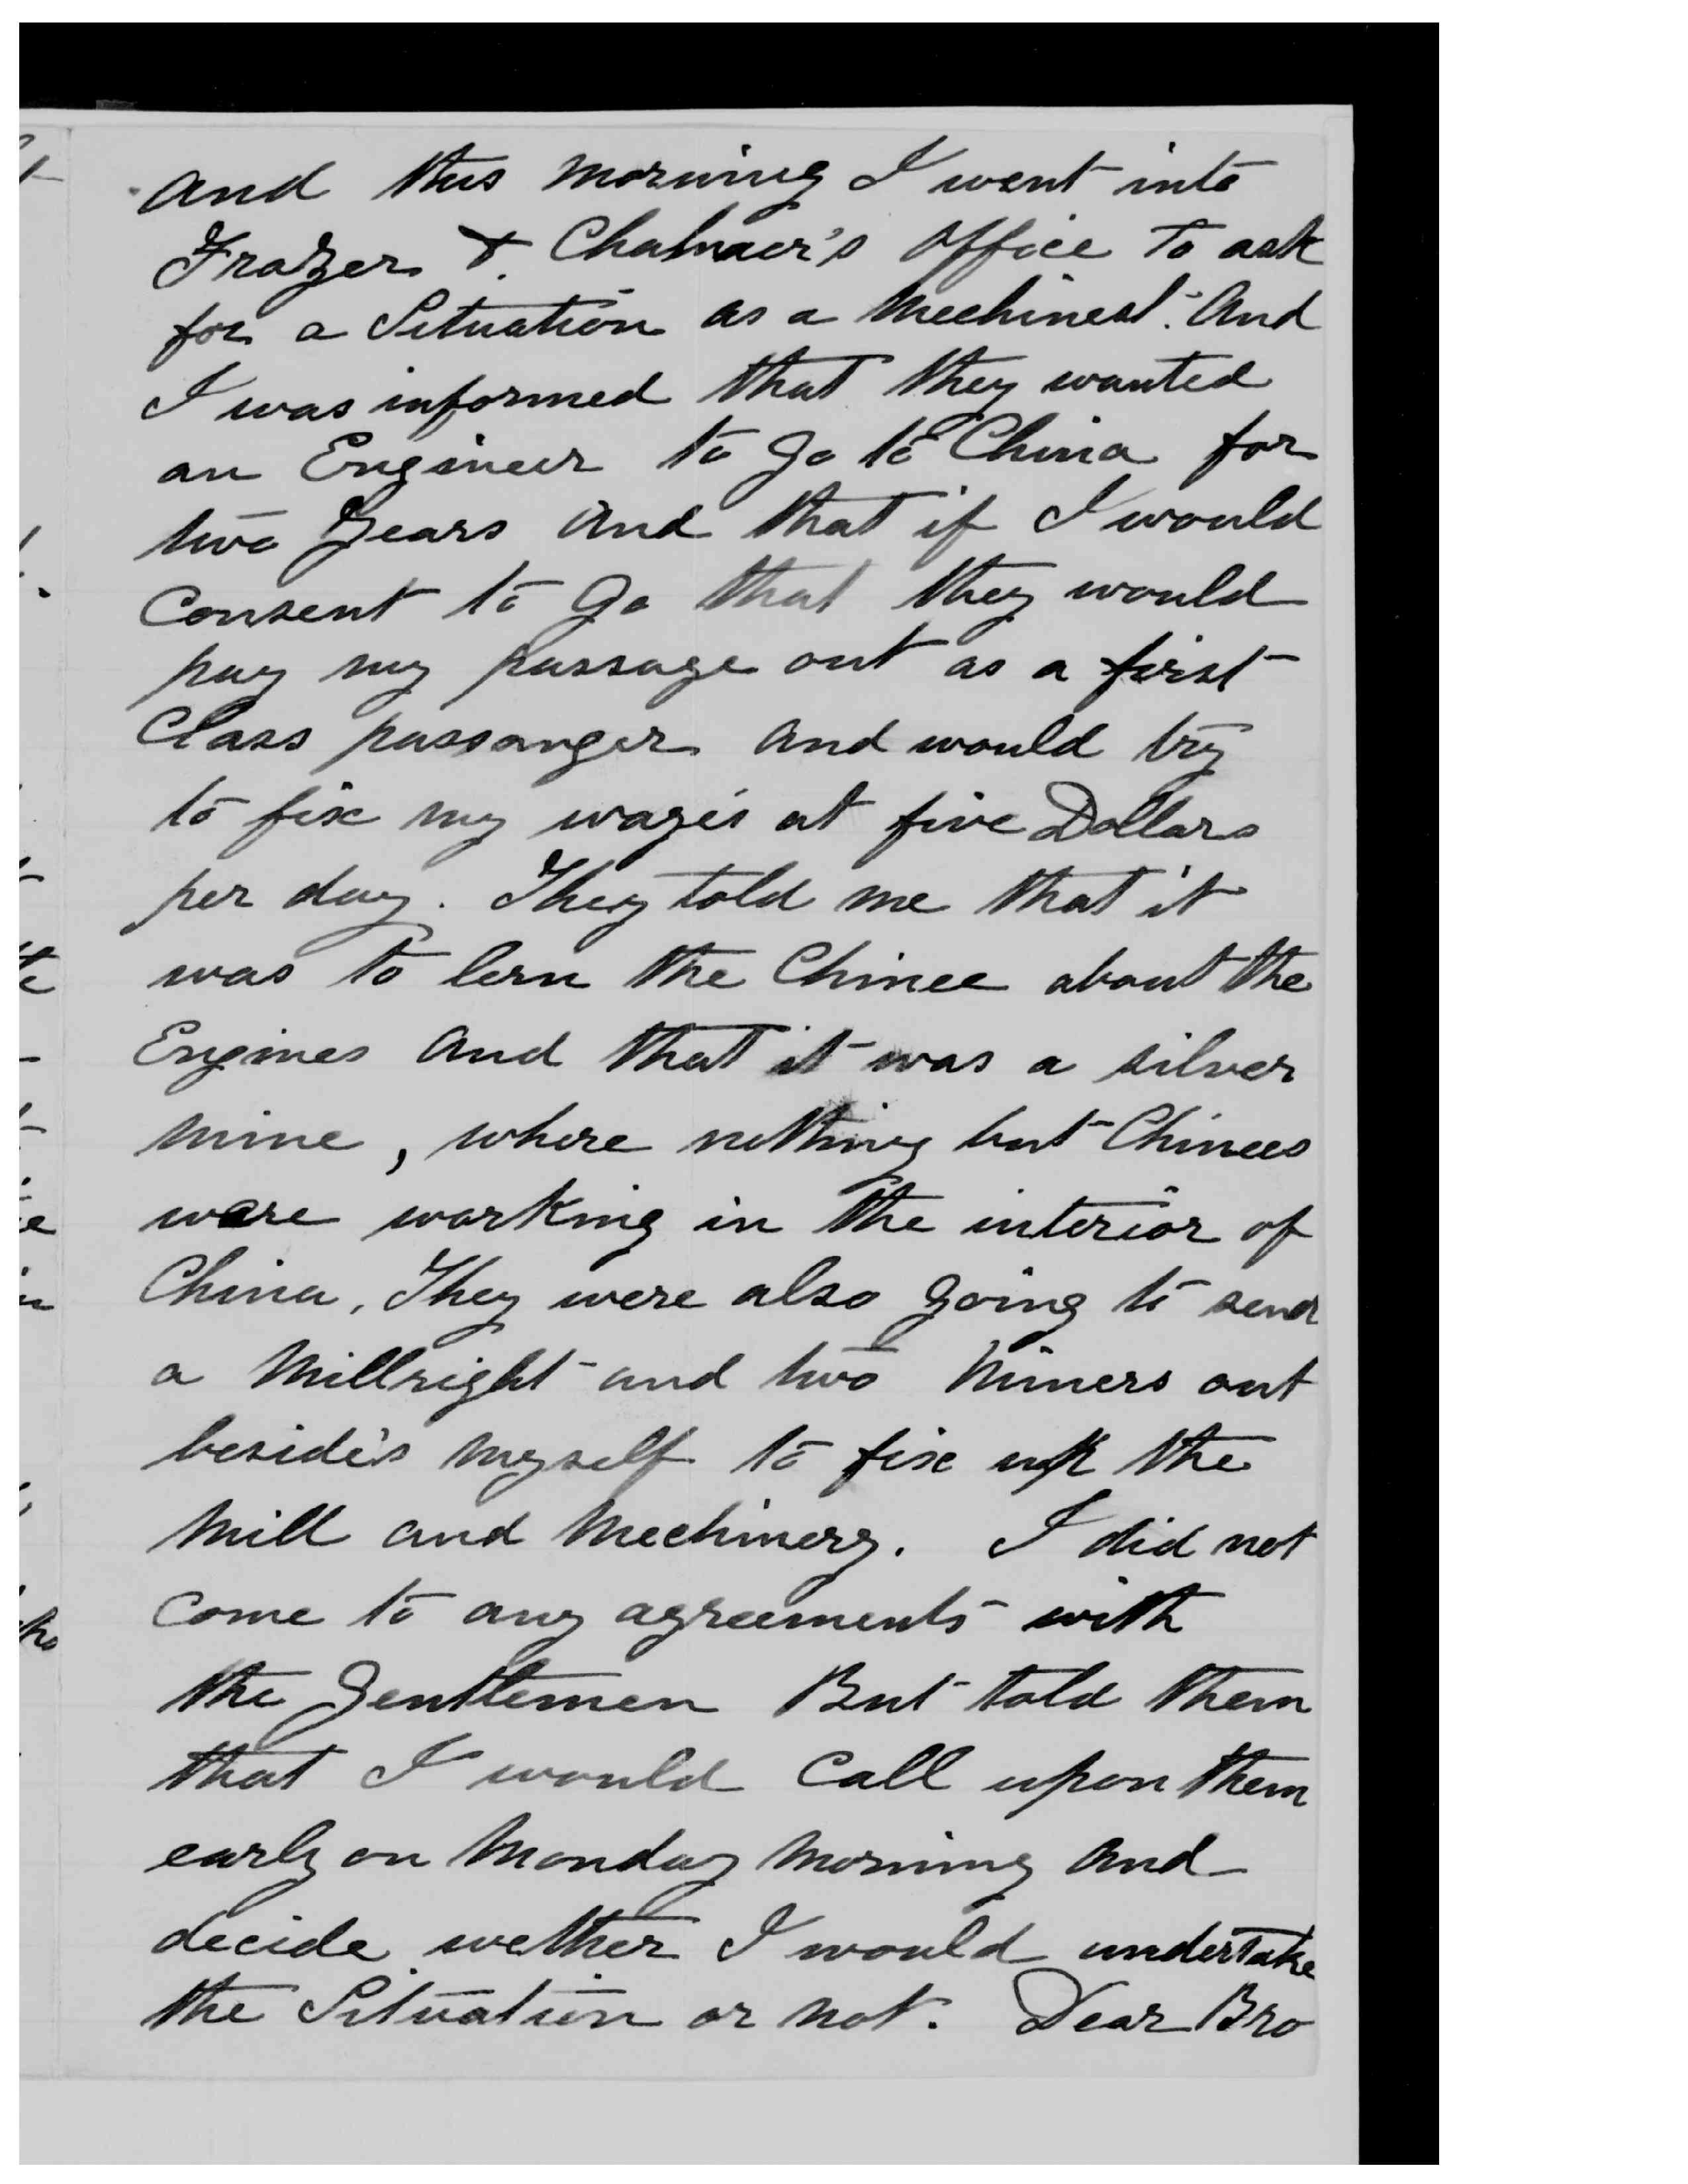 and this morning I went into
Frazer & Chalmer's Office to ask
for a Situation as a Mechinest. And
I was informed that they wanted
an Engineer to go to China for
two Years and that if I would
Consent to go that they would
pay my passage out as a first
Class passanger and would try
to fix my wages at five Dollars
per day. They told me that it
was to lern the Chinee about the
Engines and that it was a silver
mine, where nothing but Chinees
were working in the interior of
China. They were also going to send
a Millright and two Miners out
besides myself to fix up the
Mill and Mechinery. I did not
Come to any agreements with
the Gentlemen But told them
that I would Call upon them
early on Monday Morning and
decide wether I would undertake
the Situation or not. Dear Bro